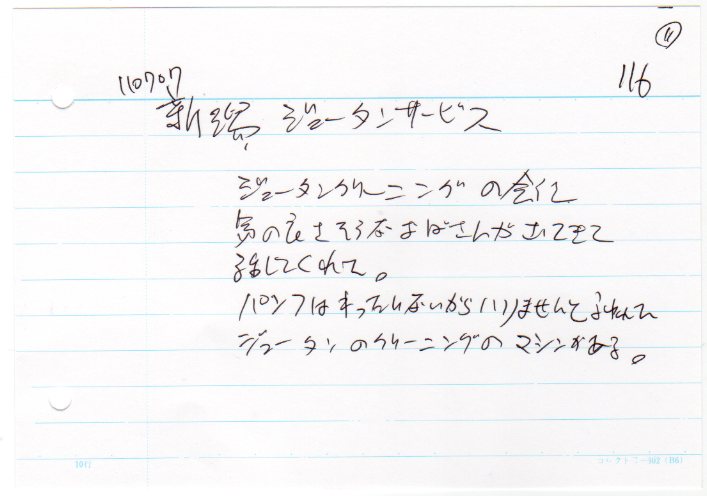 ⑪
116
110707
新潟 ジュータンサービス
ジュータンクリーニングの会社
気の良さそうなおばさんが出てきて
話してくれた。
パンフはもったいないからいりませんと言われた
ジュータンのクリーニングのマシンがある。